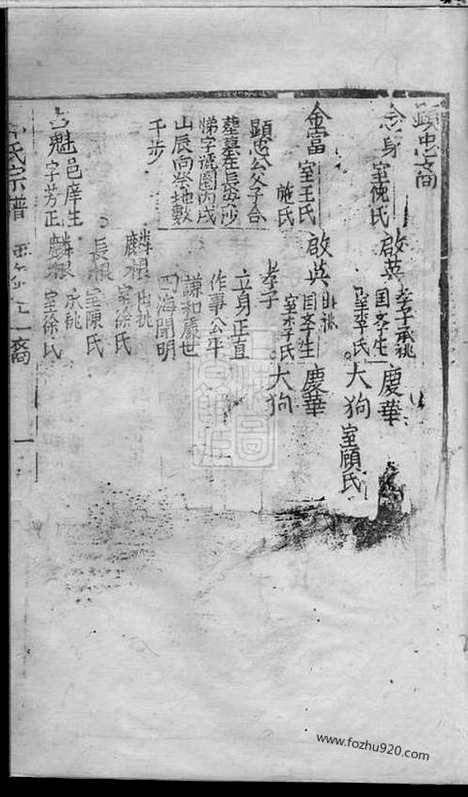 顯忠裔
念身 室倪氏 啟英 孝子承祧 國學生 室李氏 慶華
大狗 室顧氏
金富 室王氏 施氏 啟英 出祧 國學生 室李氏 慶華
大狗
孝子
顯忠公父子合
塟墓在長安沙
悌字號圍丙戌
山辰向 地數
千步
立身正直
作事公平
謙和處世
四海聞明
麟根 出祧 室徐氏
長根 室陳氏
魁 邑庠生 字芳正 麟根 承祧 室徐氏
氏宗譜
裔
一
www.fozhu920.com